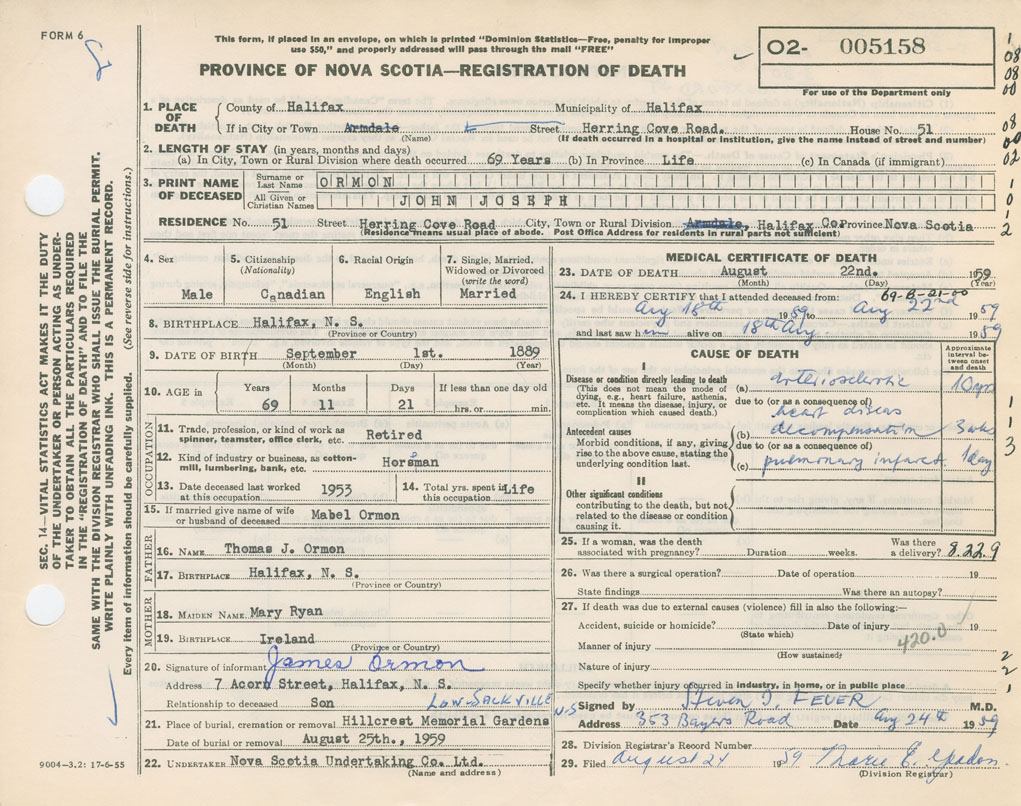 FORM 6
This form, if placed in an envelope, on which is printed "Dominion Statistics—Free, penalty for improper
use $50," and properly addressed will pass through the mail "FREE"
PROVINCE OF NOVA SCOTIA—REGISTRATION OF DEATH
O2- 005158
For use of the Department only
1
08
08
00
08
00
02
1
0
1
2
1
1
3
2
2
1
SEC. 14—VITAL STATISTICS ACT MAKES IT THE DUTY
OF THE UNDERTAKER OR PERSON ACTING AS UNDER-
TAKER TO OBTAIN ALL THE PARTICULARS REQUIRED
IN THE "REGISTRATION OF DEATH" AND TO FILE THE
SAME WITH THE DIVISION REGISTRAR WHO SHALL ISSUE THE BURIAL PERMIT.
WRITE PLAINLY WITH UNFADING INK. THIS IS A PERMANENT RECORD.
Every item of information should be carefully supplied. (See reverse side for instructions.)
1. PLACE OF DEATH
County of Halifax Municipality of Halifax
If in City or Town Armdale Street Herring Cove Road. House No. 51
(Name) (If death occurred in a hospital or institution, give the name instead of street and number)
2. LENGTH OF STAY (in years, months and days)
(a) In City, Town or Rural Division where death occurred 69 Years (b) In Province Life (c) In Canada (if immigrant)
3. PRINT NAME OF DECEASED
Surname or Last Name ORMON
All Given or Christian Names JOHN JOSEPH
RESIDENCE No. 51 Street Herring Cove Road City, Town or Rural Division Armdale, Halifax Co. Province Nova Scotia
(Residence means usual place of abode. Post Office Address for residents in rural parts not sufficient)
4. Sex Male
5. Citizenship (Nationality) Canadian
6. Racial Origin English
7. Single, Married, Widowed or Divorced (write the word) Married
8. BIRTHPLACE Halifax, N. S.
(Province or Country)
9. DATE OF BIRTH September 1st. 1889
(Month) (Day) (Year)
10. AGE in Years Months Days If less than one day old
69 11 21 hrs. or min.
OCCUPATION
11. Trade, profession, or kind of work as spinner, teamster, office clerk, etc. Retired
12. Kind of industry or business, as cotton-mill, lumbering, bank, etc. Horsman
13. Date deceased last worked at this occupation 1953
14. Total yrs. spent in this occupation Life
15. If married give name of wife or husband of deceased Mabel Ormon
FATHER
16. NAME Thomas J. Ormon
17. BIRTHPLACE Halifax, N. S.
(Province or Country)
MOTHER
18. MAIDEN NAME Mary Ryan
19. BIRTHPLACE Ireland
(Province or Country)
20. Signature of informant James Ormon
Address 7 Acorn Street, Halifax, N. S.
Relationship to deceased Son
LOW-SACKVILLE N.S
21. Place of burial, cremation or removal Hillcrest Memorial Gardens
Date of burial or removal August 25th., 1959
22. UNDERTAKER Nova Scotia Undertaking Co. Ltd.
(Name and address)
9004-3.2: 17-6-55
MEDICAL CERTIFICATE OF DEATH
23. DATE OF DEATH August 22nd. 1959
(Month) (Day) (Year)
69-B-21-00
24. I HEREBY CERTIFY that I attended deceased from:
Aug 18th 1959 to Aug 22nd 1959
and last saw him alive on 18th Aug 1959
CAUSE OF DEATH
Approximate interval between onset and death
I
Disease or condition directly leading to death
(This does not mean the mode of dying, e.g., heart failure, asthenia, etc. It means the disease, injury, or complication which caused death.)
(a) arteriosclerotic 10 yrs
due to (or as a consequence of)
heart diseas
Antecedent causes
Morbid conditions, if any, giving rise to the above cause, stating the underlying condition last.
(b) decompensation 3 wks
due to (or as a consequence of)
(c) pulmonary infarct. 1 day
II
Other significant conditions contributing to the death, but not related to the disease or condition causing it.
25. If a woman, was the death associated with pregnancy? Duration weeks. Was there a delivery? 8.22.9
26. Was there a surgical operation? Date of operation 19
State findings Was there an autopsy?
27. If death was due to external causes (violence) fill in also the following:—
Accident, suicide or homicide? Date of injury 19
(State which)
420.0
Manner of injury
(How sustained)
Nature of injury
Specify whether injury occurred in industry, in home, or in public place
Signed by Steven I. FEUER M.D.
Address 353 Bayers Road Date Aug 24th 1959
28. Division Registrar's Record Number
29. Filed August 24 1959 Marie E.
(Division Registrar)